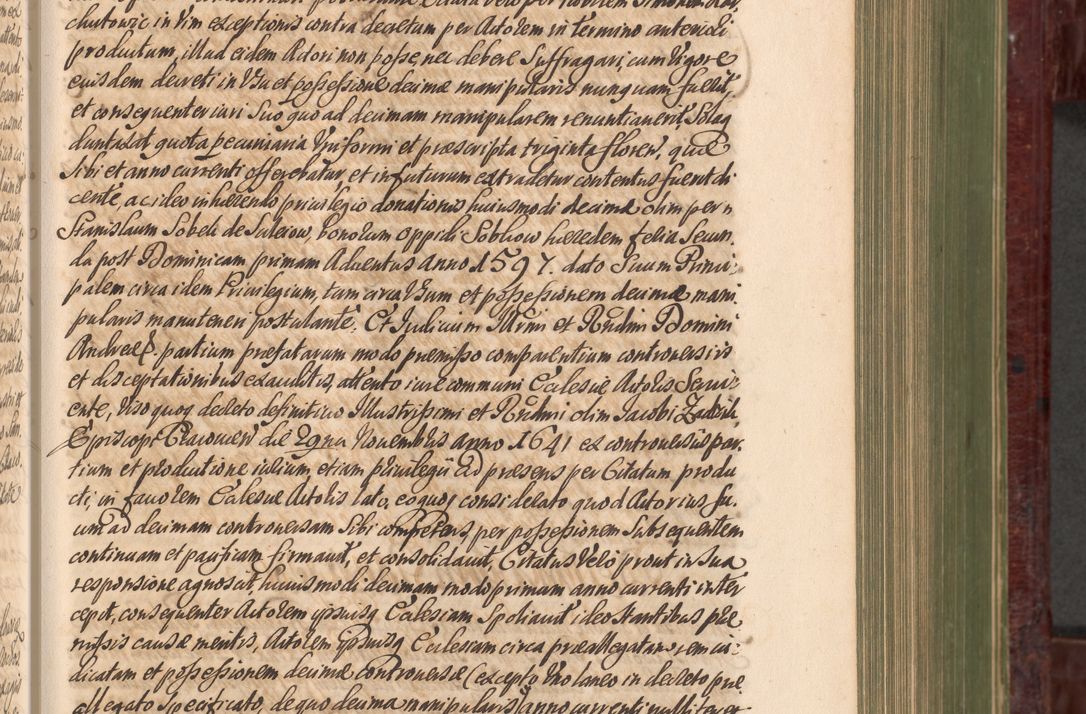 chutowic in Vim exceptionis contra decretum per Actorem in termino anteriori
productum, illud eidem Actori non posse, nec debere Suffragari, cum Vigore
eiusdem decreti in Usu et possessione decimæ manipularis nunquam fuerit,
et consequenter iuri Suo quo ad decimam manipularem renuntiaverit, Solaq
duntaxat quota pecuniaria Uniformi et præscripta triginta floren. quæ
Sibi et anno currenti offerebatur et in futurum extradetur contentus fuerit di
cente, ac ideo inhærendo privilegio donationis huiusmodi decimæ olim per n
Stanislaum Sobek de Suleiow, bonorum oppidi Sobkow hæredem feria Secun
da post Dominicam primam Adventus Anno 1597. dato Suum Princi:
palem circa idem Privilegium, tum circa Usum et possessionem decimæ mani
pularis manuteneri postulante. Et Iudicium Illrmi et Rndmi Domini
Andreæ partium præfatarum modo præmisso comparentium controversiis
et disceptationibus exauditis, attento iure communi Ecclesiæ Actoris Servi:
ente, Viso quoq decreto definitivo Illustrissimi et Rndmi olim Iacobi Zadzik
Episcopi Cracovien die 29na Novembris anno 1641 ex controversiis par
tium et productione iurium etiam privilegii ad præsens per Citatum produ
cti, in favorem Ecclesiæ Actoris lato, eoquoq considerato quod Actor ius Su
um ad decimam controversam Sibi competens per possessionem Subsequentem
continuam et pacificam firmavit, et consolidavit, Citatus Vero prout in Sua
responsione agnoscit, huiusmodi decimam modo primum anno currenti inter
cepit, consequenter Actorem ipsiusq Ecclesiam Spoliavit ideo Stantibus præ
missis causæ meritis, Actorem ipsiusq Ecclesiam circa præallegatam rem iu:
dicatam et possessionem decimæ controversæ (excepto Uno laneo in decreto præ
allegato Specificato, de quo decima manipularis anno currenti